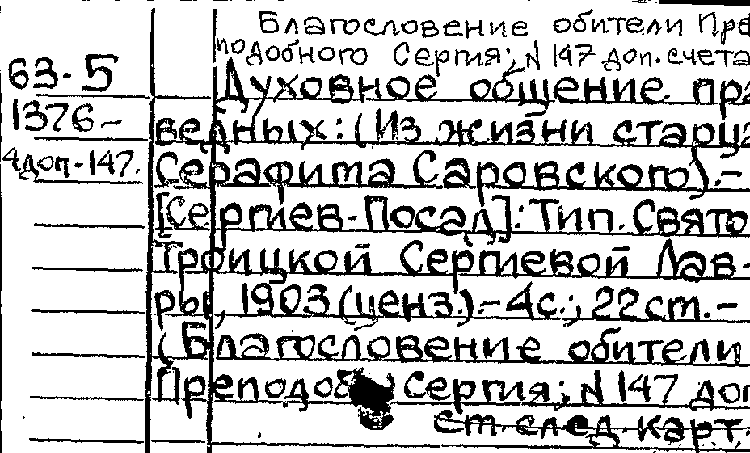 Благословение обители Пре
подобного Сергия; N 147 доп. счета
63-5
Духовное общение пра
1376-
ведных: (Из жизни старца
4доп-147.
Серафима Саровского).-
[Сергиев-Посад]: Тип. Свято
Троицкой Сергиевой Лав-
ры, 1903 (ценз.).- 4с.; 22 см.-
(Благословение обители
Преподоб Сергия; N 147 доп
см след карт.